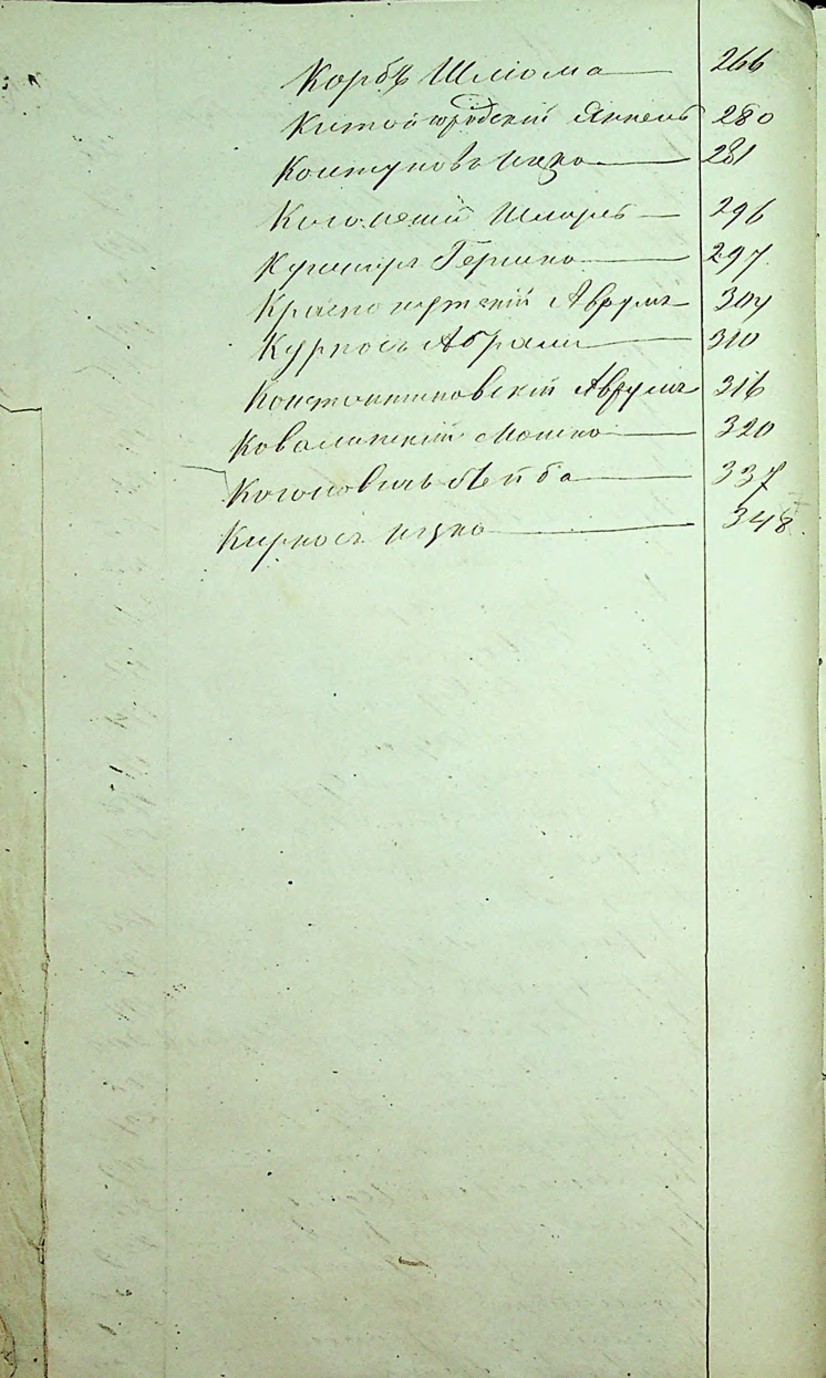 Корбъ Шліома 266
Китайгородскій Янкель 280
Колтуновъ Ицко 281
Шмарь 296
Кушнирь Гершко 297
Краснокутскій Аврумъ 304
Курносъ Абрамъ 310
Константиновскій Аврумъ 316
Ковалинскій Мошко 320
Когоновичъ Лейба 337
Кирносъ Ицко 348